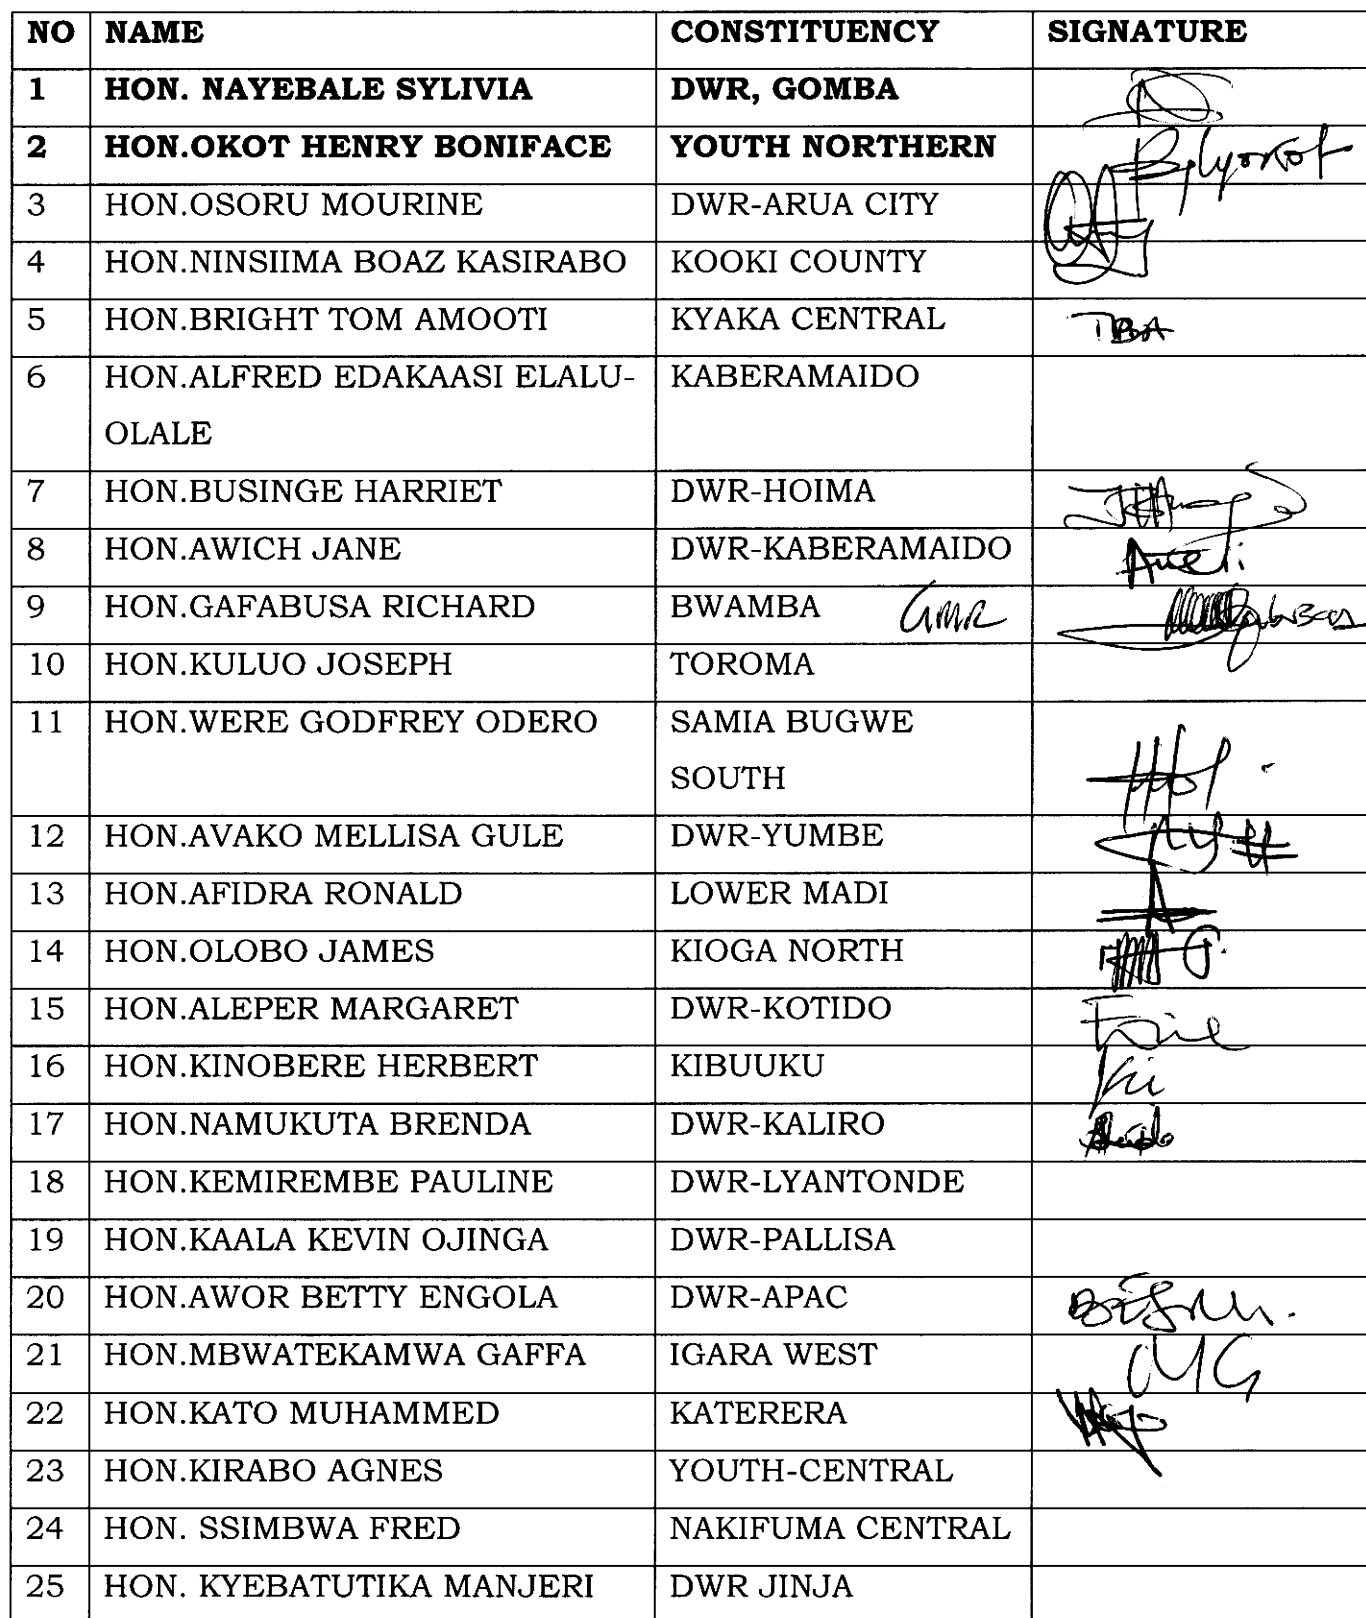 NO NAME CONSTITUENCY SIGNATURE
1 HON. NAYEBALE SYLIVIA DWR, GOMBA
2 HON.OKOT HENRY BONIFACE YOUTH NORTHERN
3 HON.OSORU MOURINE DWR-ARUA CITY
4 HON.NINSIIMA BOAZ KASIRABO KOOKI COUNTY
5 HON.BRIGHT TOM AMOOTI KYAKA CENTRAL TBA
6 HON.ALFRED EDAKAASI ELALU- KABERAMAIDO
OLALE
7 HON.BUSINGE HARRIET DWR-HOIMA
8 HON.AWICH JANE DWR-KABERAMAIDO
9 HON.GAFABUSA RICHARD BWAMBA
10 HON.KULUO JOSEPH TOROMA
11 HON.WERE GODFREY ODERO SAMIA BUGWE
SOUTH
12 HON.AVAKO MELLISA GULE DWR-YUMBE
13 HON.AFIDRA RONALD LOWER MADI
14 HON.OLOBO JAMES KIOGA NORTH
15 HON.ALEPER MARGARET DWR-KOTIDO
16 HON.KINOBERE HERBERT KIBUUKU
17 HON.NAMUKUTA BRENDA DWR-KALIRO
18 HON.KEMIREMBE PAULINE DWR-LYANTONDE
19 HON.KAALA KEVIN OJINGA DWR-PALLISA
20 HON.AWOR BETTY ENGOLA DWR-APAC
21 HON.MBWATEKAMWA GAFFA IGARA WEST MG
22 HON.KATO MUHAMMED KATERERA
23 HON.KIRABO AGNES YOUTH-CENTRAL
24 HON. SSIMBWA FRED NAKIFUMA CENTRAL
25 HON. KYEBATUTIKA MANJERI DWR JINJA